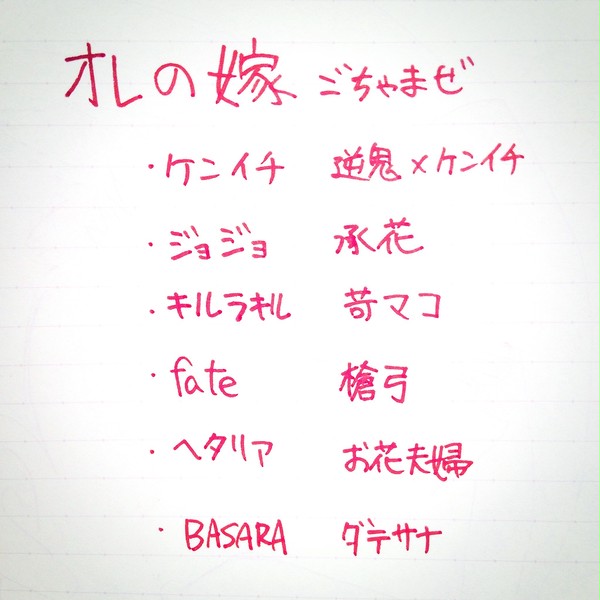 オレの嫁 ごちゃまぜ
・ケンイチ 逆鬼×ケンイチ
・ジョジョ 承花
・キルラキル 苛マコ
・fate 槍弓
・ヘタリア お花夫婦
・BASARA ダテサナ